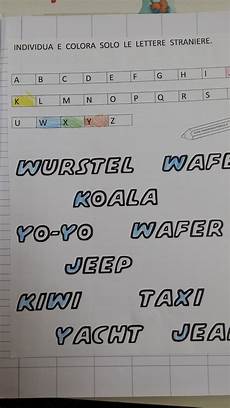 INDIVIDUA E COLORA SOLO LE LETTERE STRANIERE.
A B C D E F G H I
K L M N O P Q R S
U W X Y Z
WURSTEL WAFE
KOALA
YO-YO WAFER
JEEP
KIWI TAXI
YACHT JEA